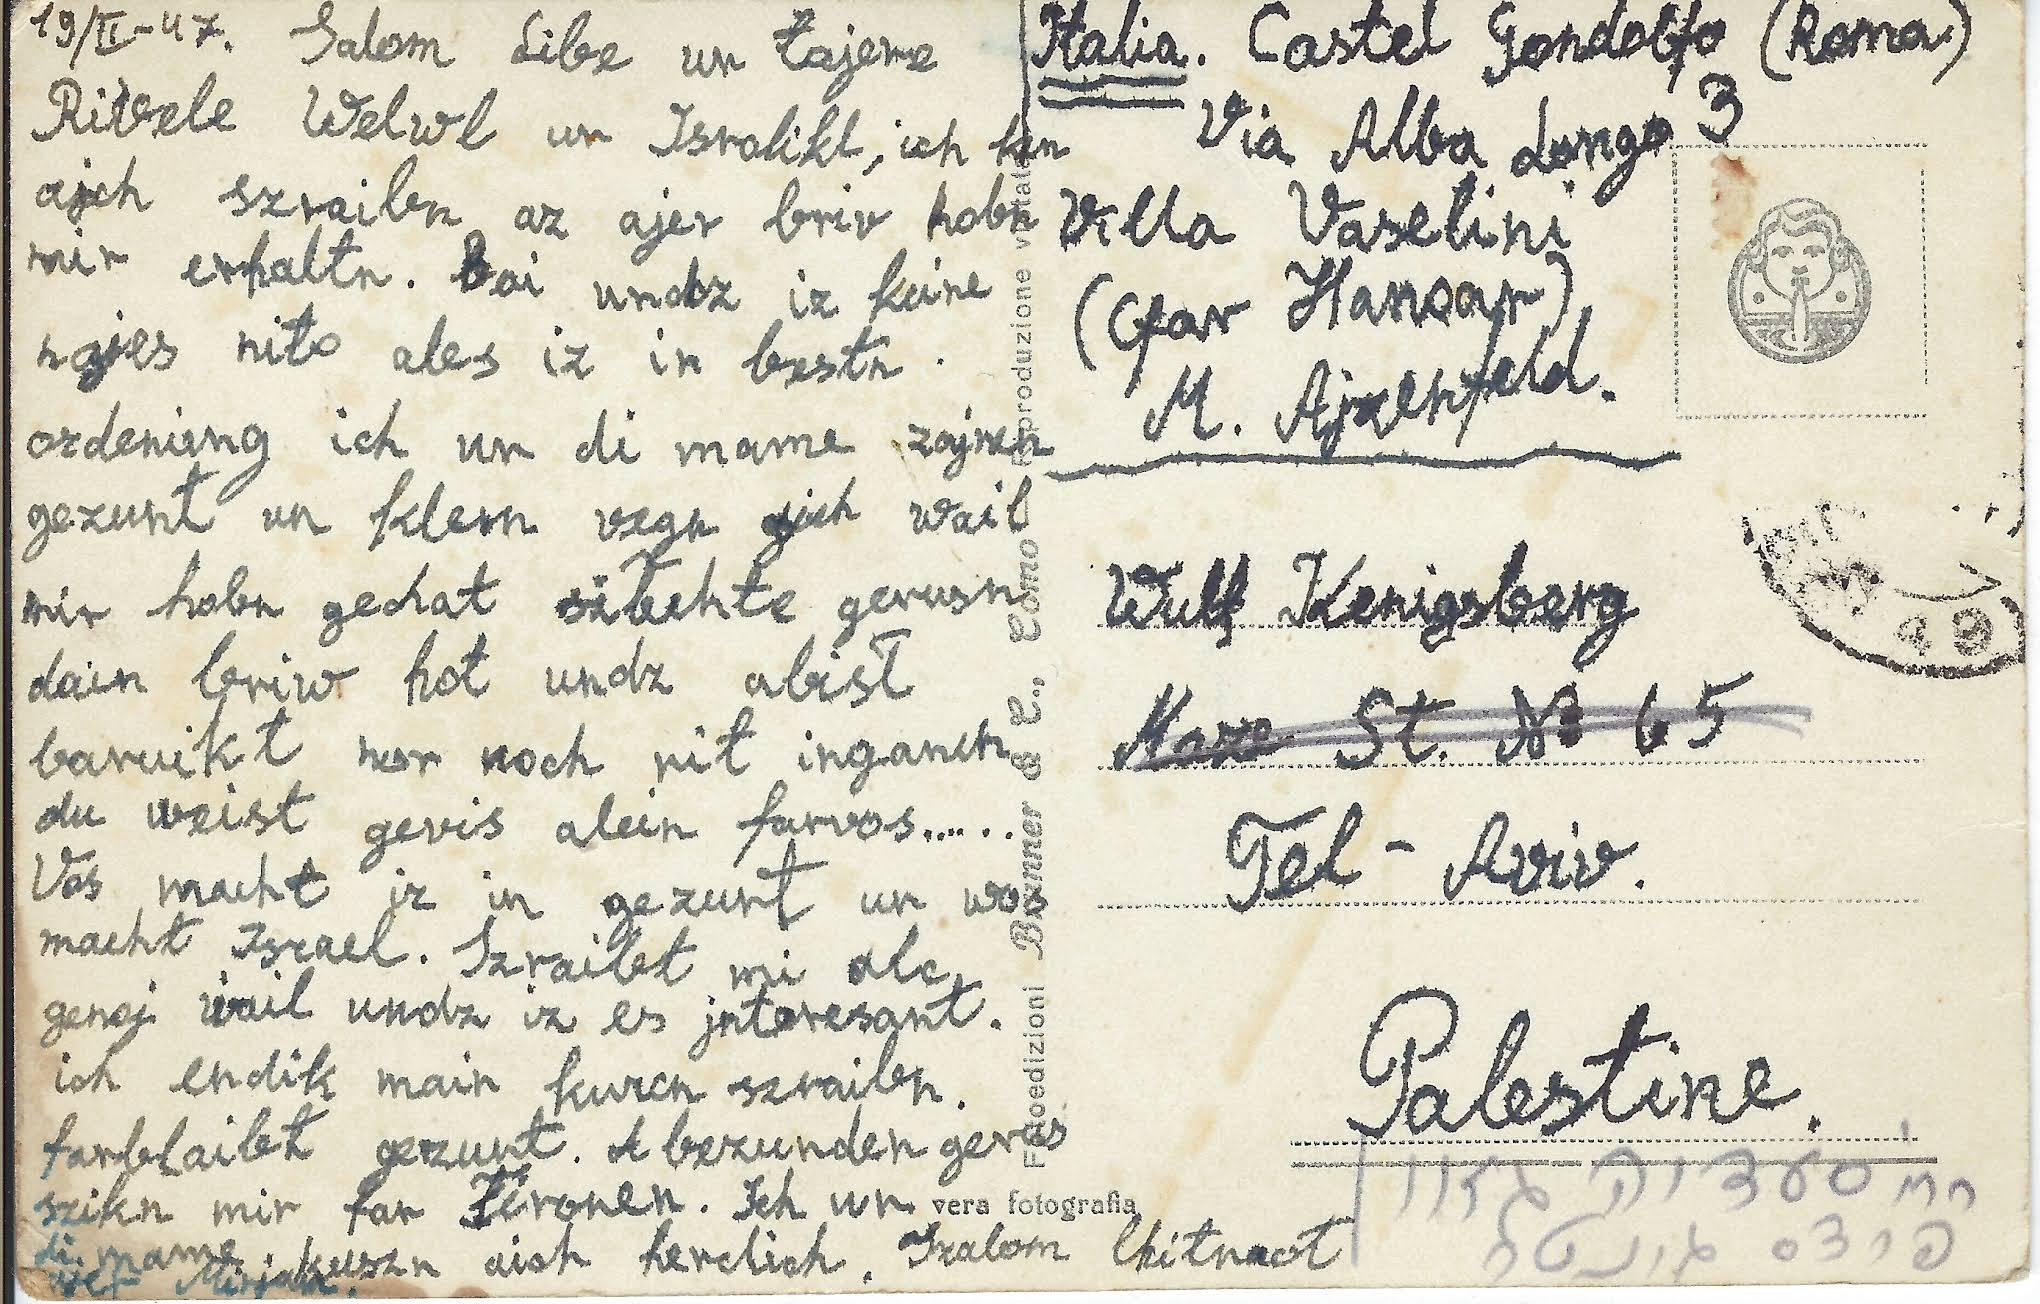 19/II-47. Szalom Libe un tajere
Rivele Welwl un Isralikl, ich kin
ajch szraibn az ajer briv hobn
mir erhaltn. Bai undz iz keine
najes nito ales iz in bestn
ordeniung ich un di mame zajnen
gezunt un klern vegn ajch wail
mir hobn gechat
dain briw hot undz abisl
baruikt nor noch nit inganen
du weist gevis alein farvos......
Vos macht iz in gezunt un wos
macht Israel. Szraibt mi alc
genoj wail undz iz es jnteresant.
ich endik main kurcn szraibn.
farblaibt gezunt. A bezunden gerus
szikn mir far Fironen. Ich un
di mame kuszn aich herclich. Szalom lhitraot
Mirjam.
Italia. Castel Gondolfo (Roma)
Via Alba Longo 3
Villa Vaselini
(Cfar Hanoar)
M. Ajzenfeld.
Wulf Kenigsberg
Maze St. № 65
Tel-Aviv.
Palestine.
רח סעדיה גאון
Fotoedizioni Brunner & C., Como Riproduzione vietata
vera fotografia
49